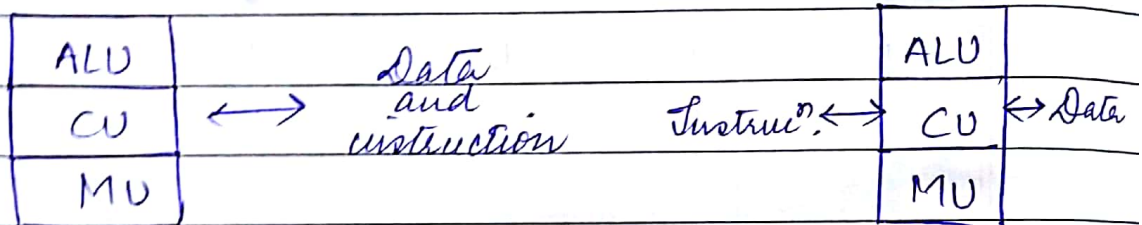 ALU
CU
MU
Data
and
instruction
Instrucⁿ.
ALU
CU
MU
Data